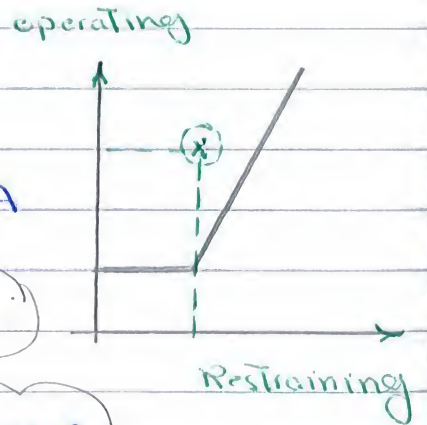 operating
x
Restraining